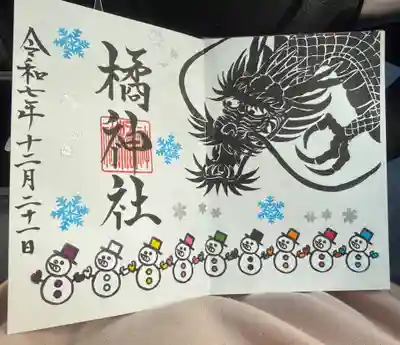 橘神社
令和七年十二月二十一日